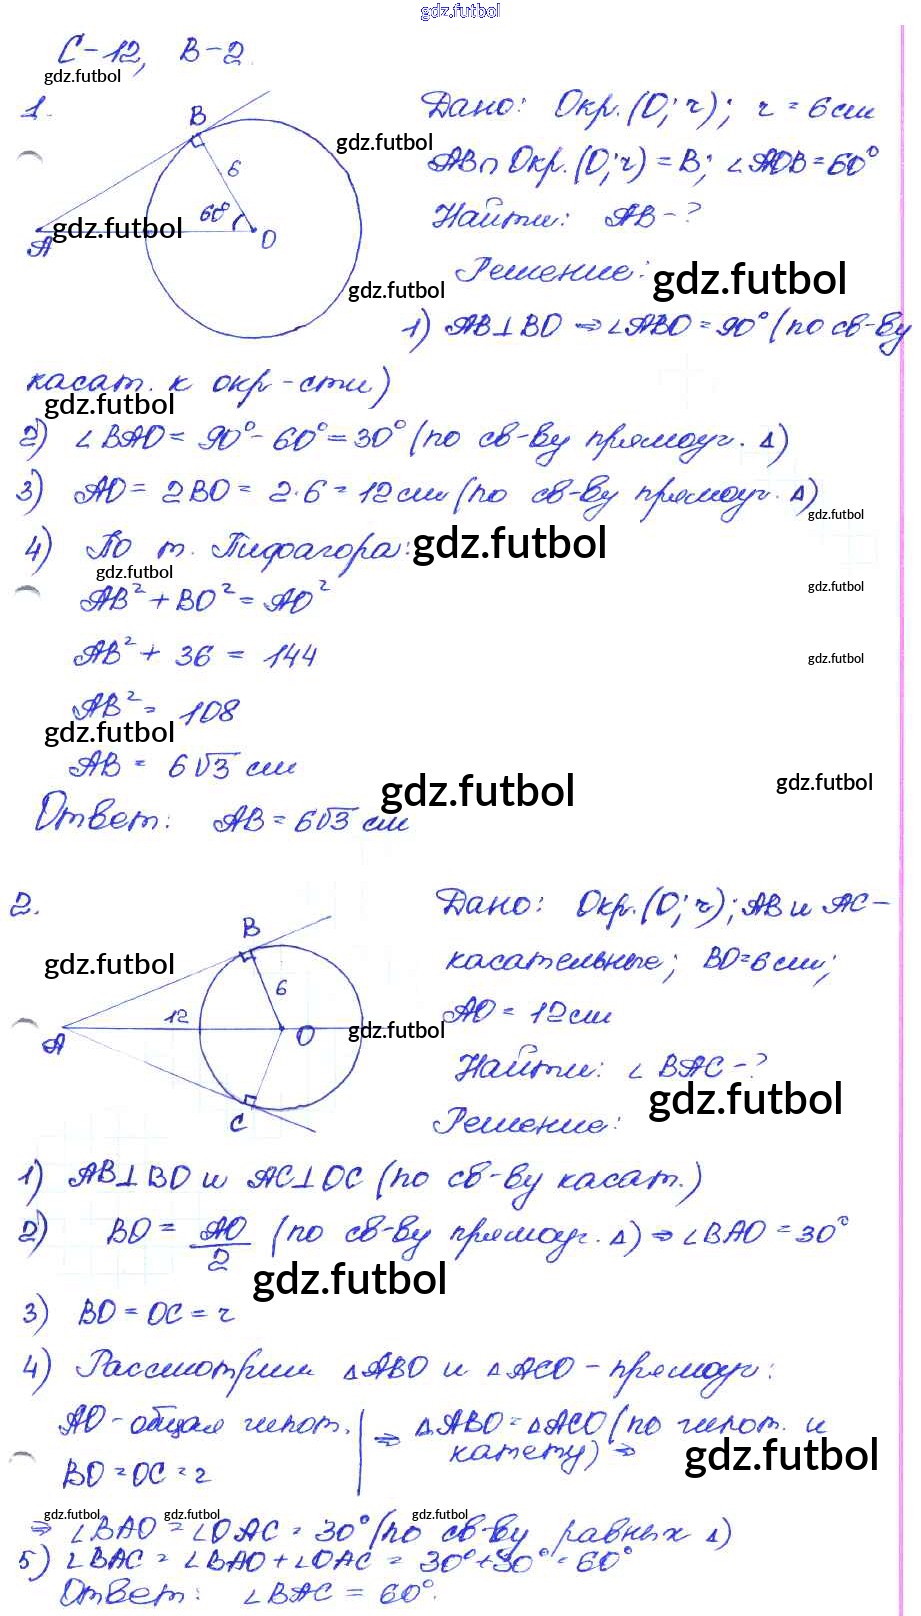 gdz.futbol
С-12, В-2
gdz.futbol
1.
B
6
60°
A
O
gdz.futbol
gdz.futbol
gdz.futbol
Дано: Окр.(O; r); r = 6 см
AB∩Окр.(O; r) = B; ∠AOB = 60°
Найти: AB - ?
Решение:
gdz.futbol
1) AB⊥BO ⇒ ∠ABO = 90° (по св-ву
касат. к окр-сти)
gdz.futbol
2) ∠BAO = 90° - 60° = 30° (по св-ву прямоуг. Δ)
3) AO = 2BO = 2·6 = 12 см (по св-ву прямоуг. Δ)
gdz.futbol
4) По т. Пифагора:
gdz.futbol
gdz.futbol
gdz.futbol
AB² + BO² = AO²
AB² + 36 = 144
gdz.futbol
AB² = 108
gdz.futbol
AB = 6√3 см
gdz.futbol
gdz.futbol
Ответ: AB = 6√3 см
2.
B
6
12
A
O
C
gdz.futbol
gdz.futbol
Дано: Окр.(O; r); AB и AC-
касательные; BO = 6 см;
AO = 12 см
Найти: ∠BAC - ?
gdz.futbol
Решение:
1) AB⊥BO и AC⊥OC (по св-ву касат.)
2) BO = AO/2 (по св-ву прямоуг. Δ) ⇒ ∠BAO = 30°
gdz.futbol
3) BO = OC = r
4) Рассмотрим ΔABO и ΔACO - прямоуг:
AO - общая гипот. | ⇒ ΔABO = ΔACO (по гипот. и
BO = OC = r | катету) ⇒
gdz.futbol
gdz.futbol
gdz.futbol
gdz.futbol
⇒ ∠BAO = ∠OAC = 30° (по св-ву равных Δ)
5) ∠BAC = ∠BAO + ∠OAC = 30° + 30° = 60°
Ответ: ∠BAC = 60°.